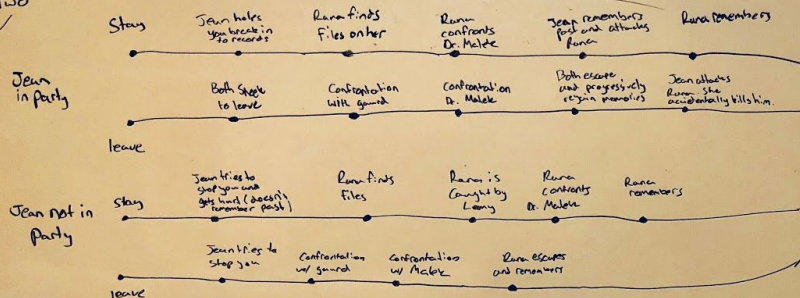 Stay
Jean helps
you break in
to records
Runa finds
Files on her
Runa
confronts
Dr. Malek
Jean remembers
past and attacks
Runa
Runa remembers
Jean
in party
Both
to leave
Confrontation
with gaurd
Confrontation
Dr. Malek
Both escape
and progressively
regain memories
Jean attacks
Runa. She
accidentally kills him.
leave
Jean not in
Party
Stay
Jean tries to
stop you and
gets hurt (doesn't
remember past)
Runa finds
Files
Runa is
Caught by
Runa
Confronts
Dr. Malek
Runa
remembers
leave
Jean tries to
stop you
Confrontation
w/ guard
Confrontation
w/ Malek
Runa escapes
and remembers